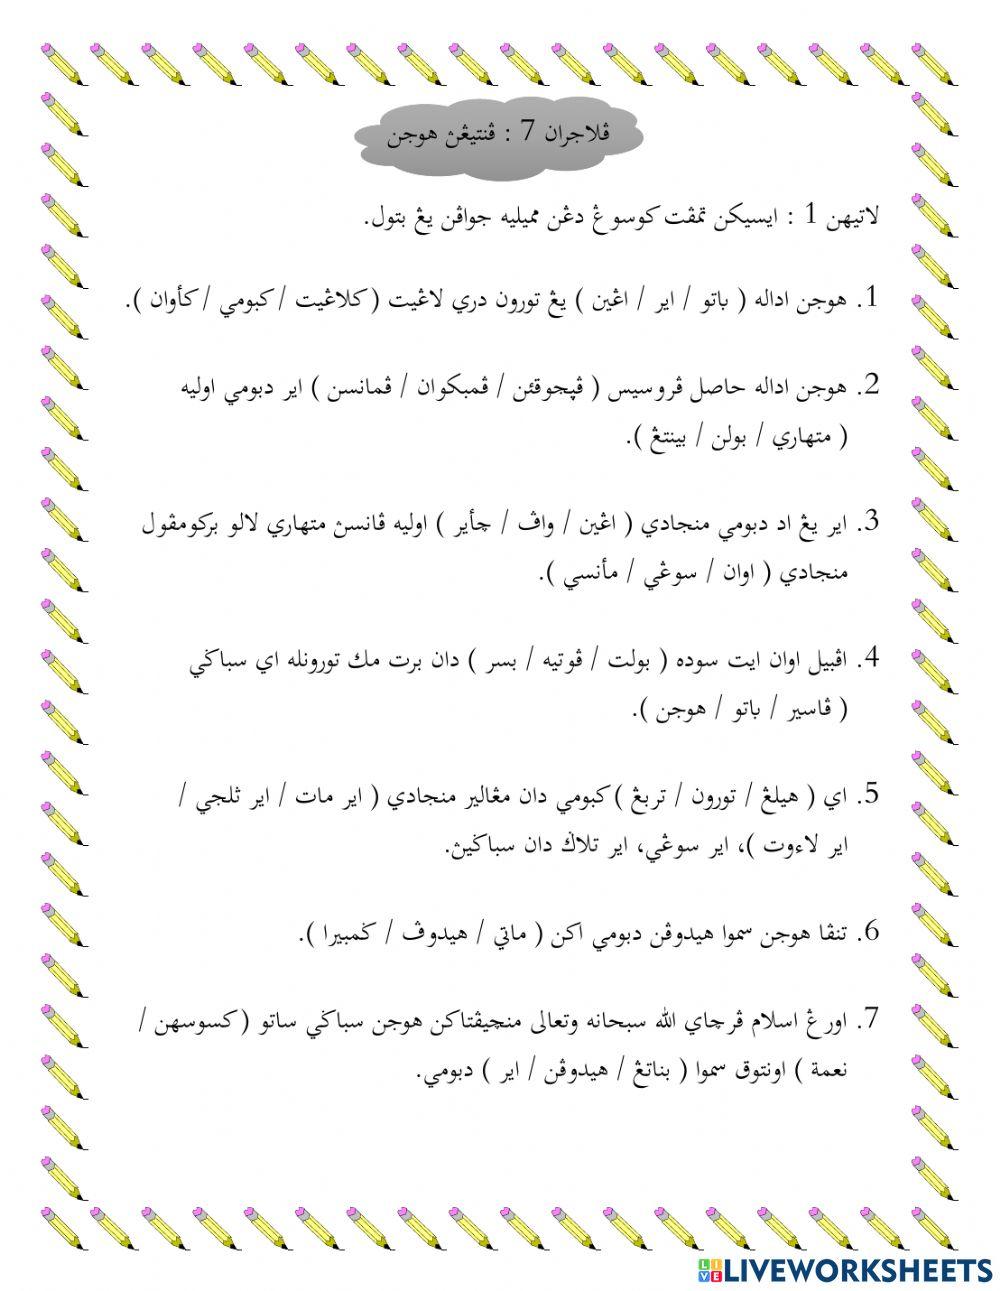 ڤلاجران 7 : ڤنتيڠڽ هوجن
لاتيهن 1 : ايسيكن تمڤت كوسوڠ دڠن مميليه جواڤن يڠ بتول.
1. هوجن اداله ( باتو / اير / اڠين ) يڠ تورون دري لاڠيت ( كلاڠيت / كبومي / كأوان ).
2. هوجن اداله حاصل ڤروسيس ( ڤڽجوقئن / ڤمبكوان / ڤمانسن ) اير دبومي اوليه
( متهاري / بولن / بينتڠ ).
3. اير يڠ اد دبومي منجادي ( اڠين / واڤ / چأير ) اوليه ڤانسڽ متهاري لالو بركومڤول
منجادي ( اوان / سوڠي / مأنسي ).
4. اڤبيل اوان ايت سوده ( بولت / ڤوتيه / بسر ) دان برت مك تورونله اي سباݢي
( ڤاسير / باتو / هوجن ).
5. اي ( هيلڠ / تورون / تربڠ ) كبومي دان مڠالير منجادي ( اير مات / اير ثلجي /
اير لاءوت )، اير سوڠي، اير تلاݢ دان سباݢيڽ.
6. تنڤا هوجن سموا هيدوڤن دبومي اكن ( ماتي / هيدوڤ / ݢمبيرا ).
7. اورڠ اسلام ڤرچاي الله سبحانه وتعالى منچيڤتاكن هوجن سباݢي ساتو ( كسوسهن /
نعمة ) اونتوق سموا ( بناتڠ / هيدوڤن / اير ) دبومي.
LIVEWORKSHEETS